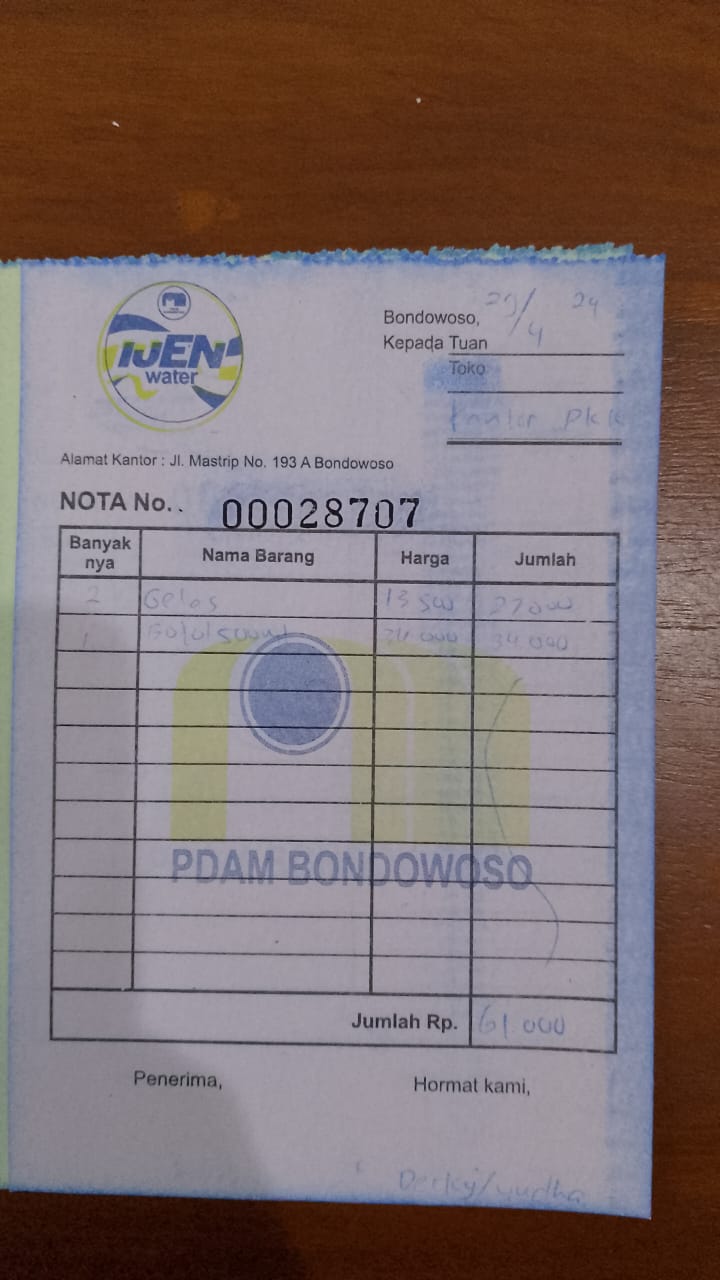 IJEN
water
Bondowoso, 29/4 24
Kepada Tuan
Toko
Kantor PKK
Alamat Kantor : Jl. Mastrip No. 193 A Bondowoso
NOTA No.. 00028707
Banyak nya Nama Barang Harga Jumlah
2 Gelas 13 500 27000
1 Botol 500ml 34 000 34.000
PDAM BONDOWOSO
Jumlah Rp. 61.000
Penerima, Hormat kami,
/yudha